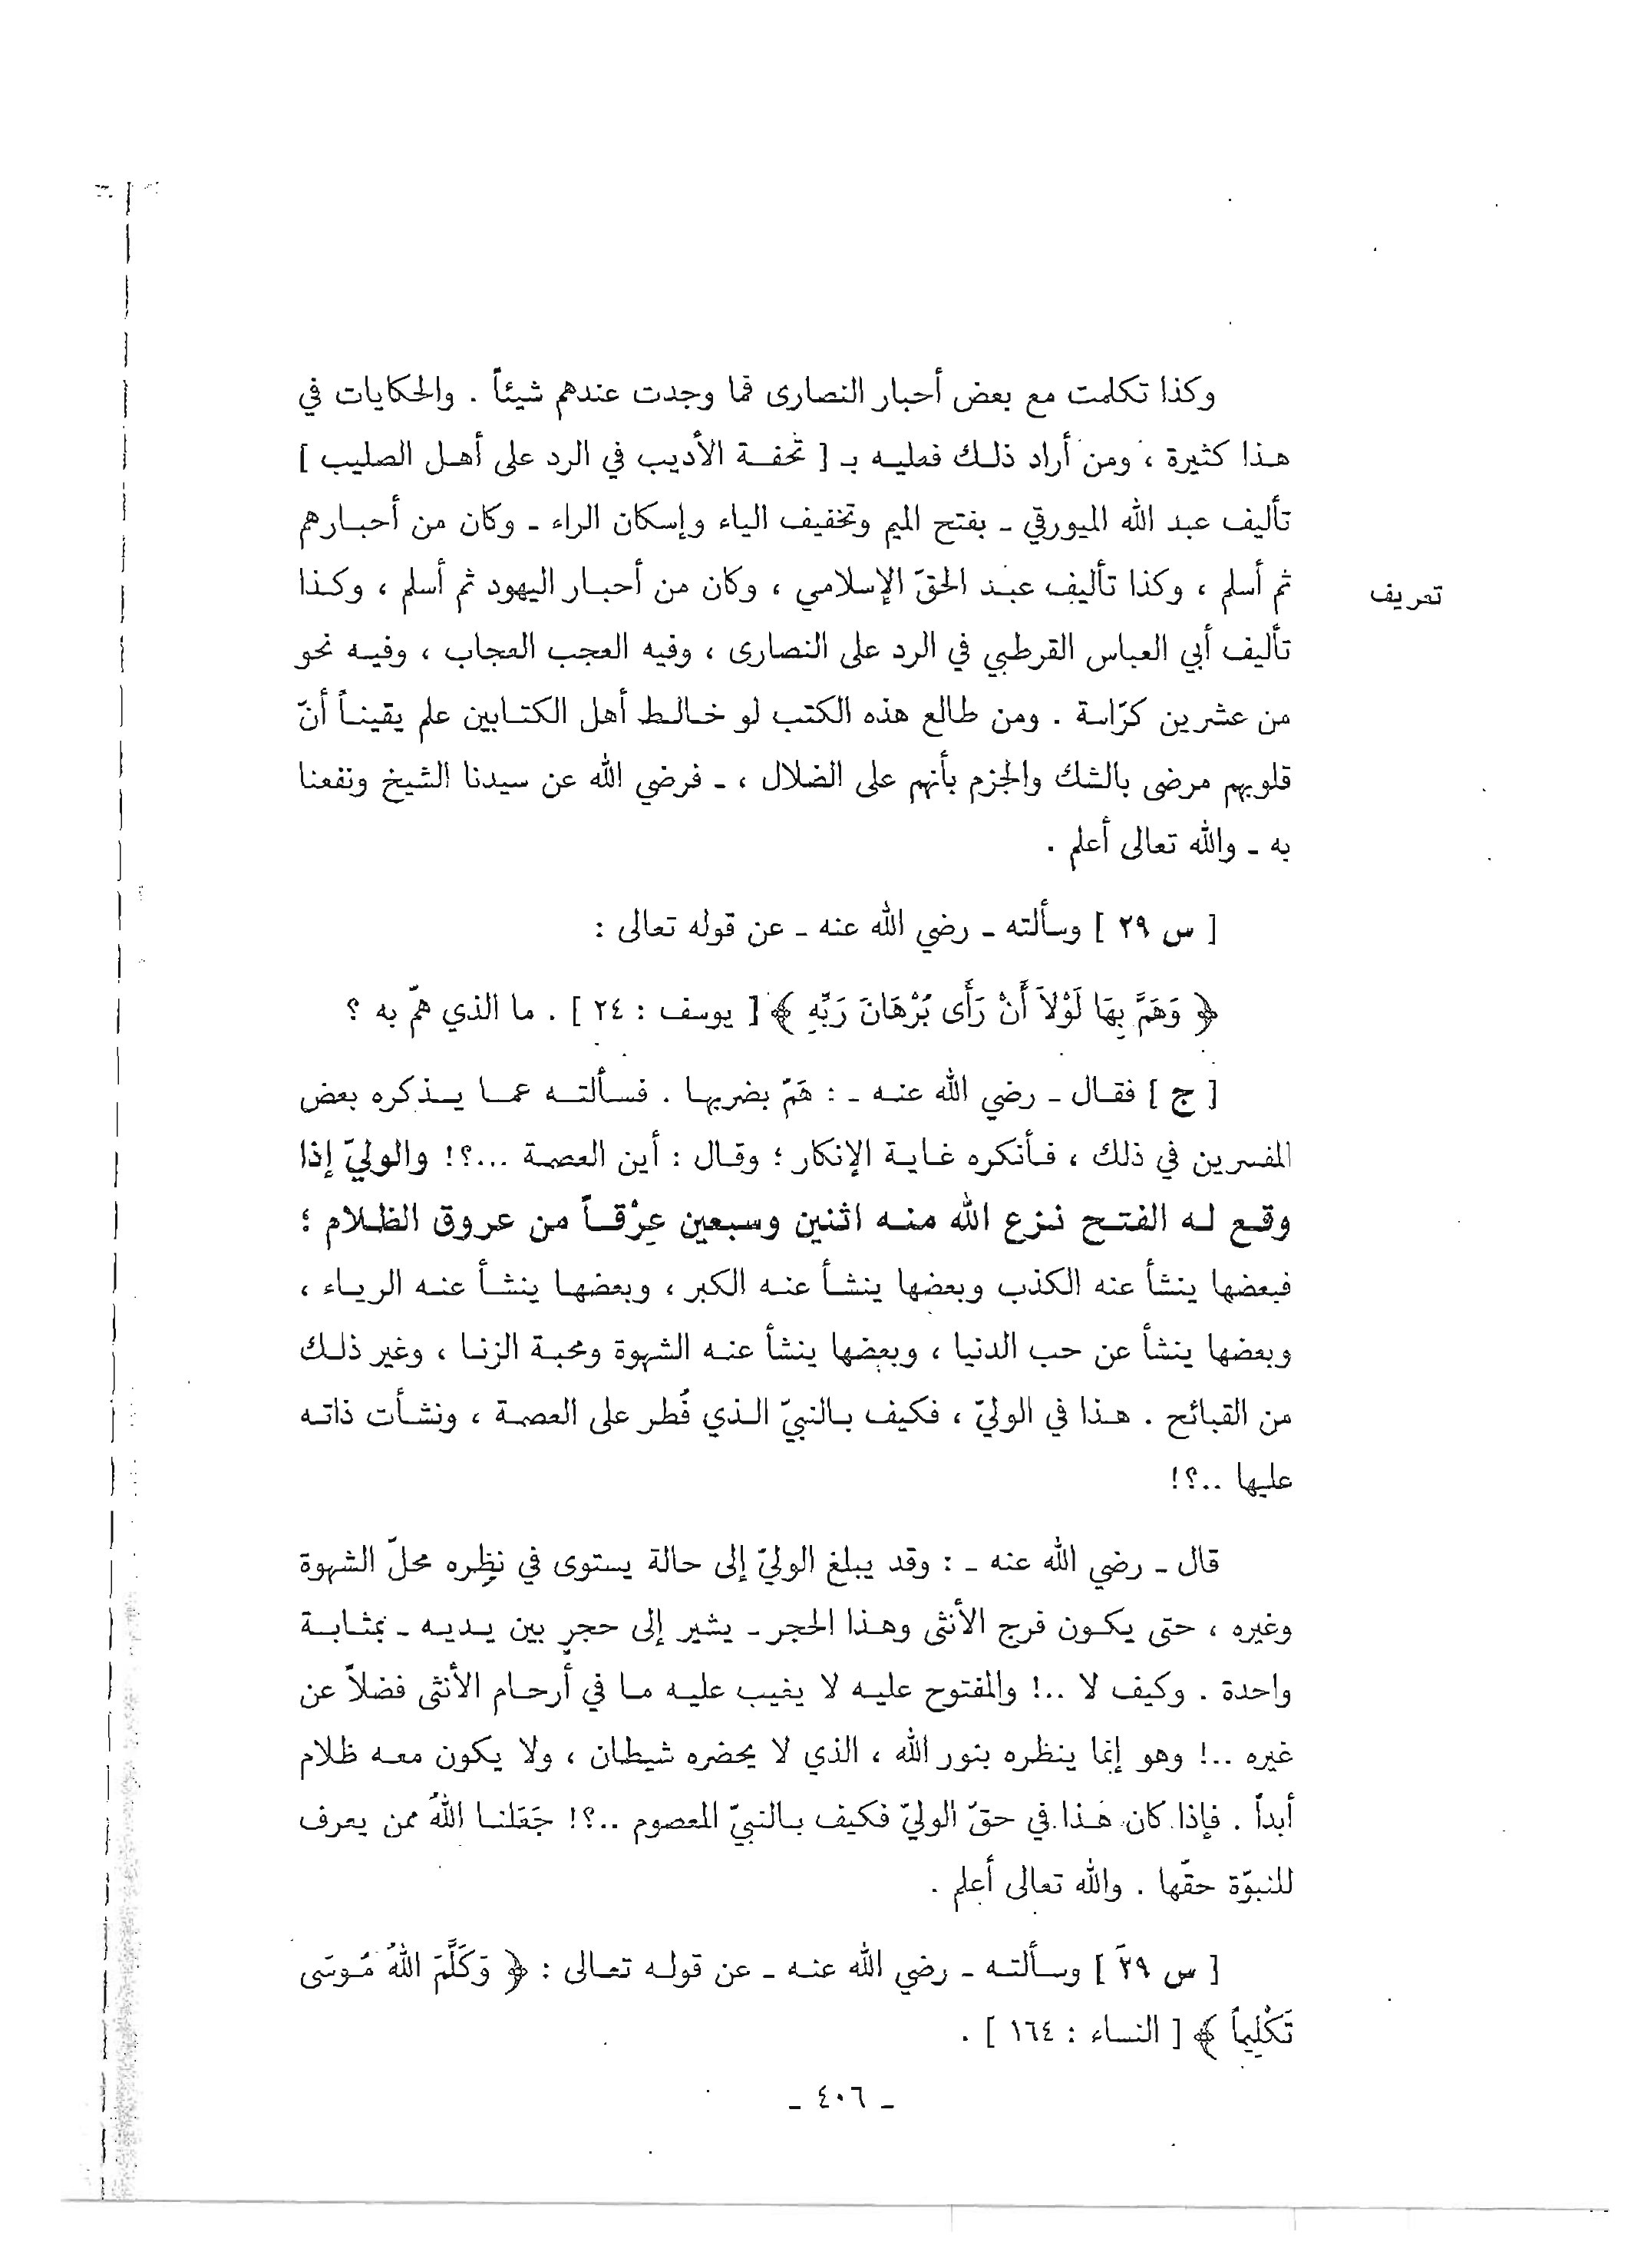 وكذا تكلمت مع بعض أحبار النصارى فما وجدت عندهم شيئاً . والحكايات في
هذا كثيرة ، ومن أراد ذلك فعليه بـ [ تحفة الأديب في الرد على أهل الصليب ]
تأليف عبد الله الميورقي ـ بفتح الميم وتخفيف الياء وإسكان الراء ـ وكان من أحبارهم
ثم أسلم ، وكذا تأليف عبد الحقّ الإسلامي ، وكان من أحبار اليهود ثم أسلم ، وكذا
تعريف
تأليف أبي العباس القرطبي في الرد على النصارى ، وفيه العجب العجاب ، وفيه نحو
من عشرين كرّاسة . ومن طالع هذه الكتب لو خالط أهل الكتابين علم يقيناً أنّ
قلوبهم مرضى بالشك والجزم بأنهم على الضلال ، ـ فرضي الله عن سيدنا الشيخ ونفعنا
به ـ والله تعالى أعلم .
[ س ٢٩ ] وسألته ـ رضي الله عنه ـ عن قوله تعالى :
﴿ وَهَمَّ بِهَا لَوْلاَ أَنْ رَأَى بُرْهَانَ رَبِّهِ ﴾ [ يوسف : ٢٤ ] . ما الذي همّ به ؟
[ ج ] فقال ـ رضي الله عنه ـ : هَمّ بضربها . فسألته عما يذكره بعض
المفسرين في ذلك ، فأنكره غاية الإنكار ؛ وقال : أين العصمة ...؟! والوليّ إذا
وقع له الفتح نزع الله منه اثنين وسبعين عِرْقاً من عروق الظلام ؛
فبعضها ينشأ عنه الكذب وبعضها ينشأ عنه الكبر ، وبعضها ينشأ عنه الرياء ،
وبعضها ينشأ عن حب الدنيا ، وبعضها ينشأ عنه الشهوة ومحبة الزنا ، وغير ذلك
من القبائح . هذا في الوليّ ، فكيف بالنبيّ الذي فُطر على العصمة ، ونشأت ذاته
عليها ..؟!
قال ـ رضي الله عنه ـ : وقد يبلغ الوليّ إلى حالة يستوى في نظره محلّ الشهوة
وغيره ، حتى يكون فرج الأنثى وهذا الحجر ـ يشير إلى حجرٍ بين يديه ـ بمثابة
واحدة . وكيف لا ..! والمفتوح عليه لا يغيب عليه ما في أرحام الأنثى فضلاً عن
غيره ..! وهو إنما ينظره بنور الله ، الذي لا يحضره شيطان ، ولا يكون معه ظلام
أبداً . فإذا كان هذا في حقّ الوليّ فكيف بالنبيّ المعصوم ..؟! جَعَلنا اللهُ ممن يعرف
للنبوّة حقّها . والله تعالى أعلم .
[ س ٢٩ ] وسألته ـ رضي الله عنه ـ عن قوله تعالى : ﴿ وَكَلَّمَ اللهُ مُوسَى
تَكْلِيماً ﴾ [ النساء : ١٦٤ ] .
ـ ٤٠٦ ـ